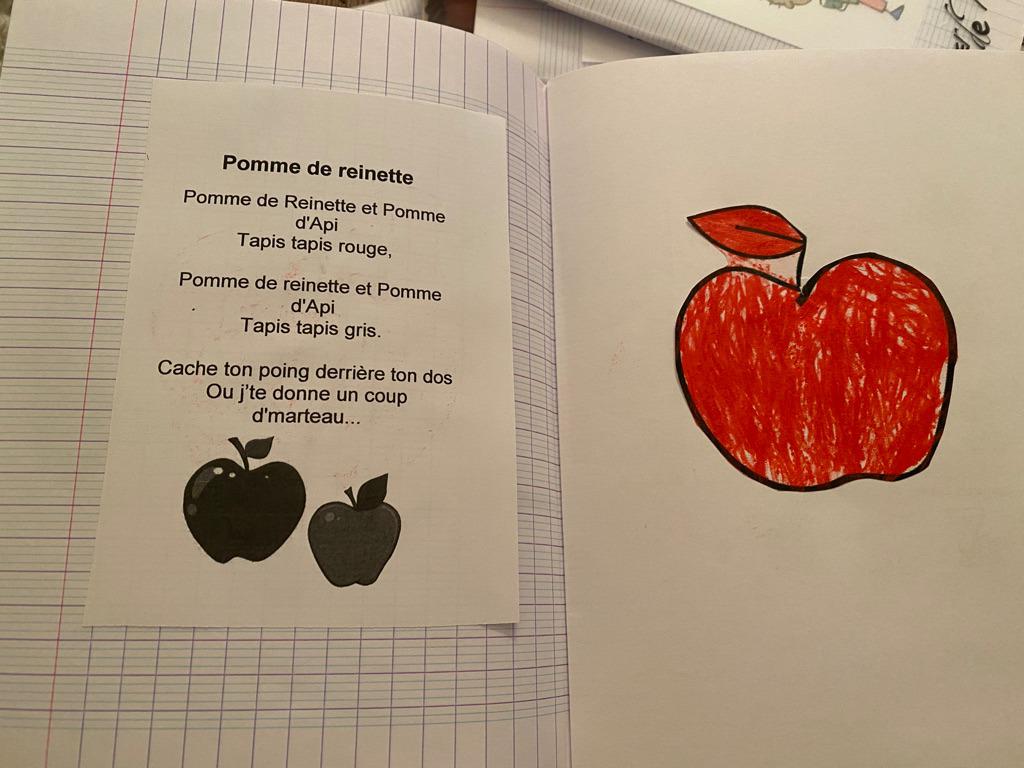 Pomme de reinette
Pomme de Reinette et Pomme
d'Api
Tapis tapis rouge,
Pomme de reinette et Pomme
d'Api
Tapis tapis gris.
Cache ton poing derrière ton dos
Ou j'te donne un coup
d'marteau...